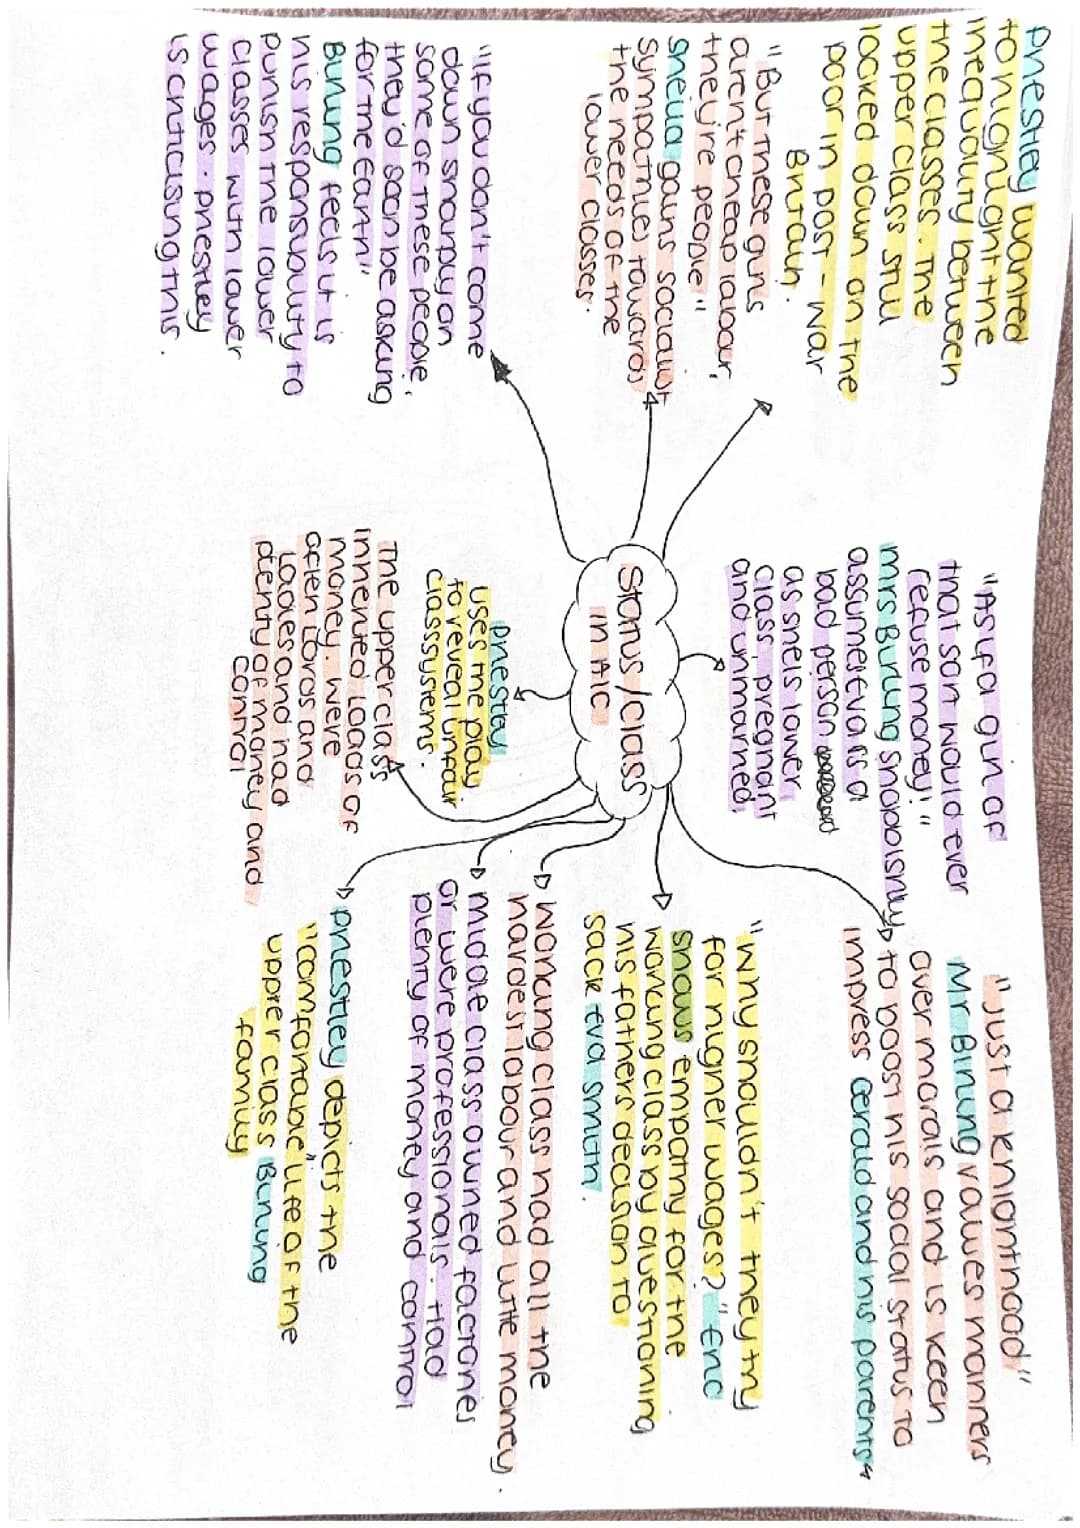 Priestley wanted
to highlight the
inequality between
the classes. The
upper class still
looked down on the
poor in post - war
Britain.
"But these girls
aren't cheap labour,
they're people"
Sheila gains socialist
sympathies towards
the needs of the
lower classes.
"If you don't come
down sharply on
some of these people,
they'd soon be asking
for the earth"
Birling feels it is
his responsibility to
punish the lower
classes with lower
wages. Priestley
is criticising this.
"As if a girl of
that sort would ever
refuse money!"
Mrs Birling snobbishly
assumes Eva is a
bad person
as she is lower
class, pregnant
and unmarried
Status/class
in AIC
Priestley
uses the play
to reveal unfair
class systems.
The upper class
inherited loads of
money. were
often Lords and
Ladies and had
plenty of money and
control
"Just a knighthood"
Mr Birling values manners
over morals and is keen
to boost his social status to
impress Gerald and his parents
"Why shouldn't they try
for higher wages?" Eric
shows empathy for the
working class by questioning
his fathers decision to
sack Eva Smith.
Working class had all the
hardest labour and little money.
Middle class owned factories
or were professionals. Had
plenty of money and control
Priestley depicts the
"comfortable" life of the
upper class Birling
family